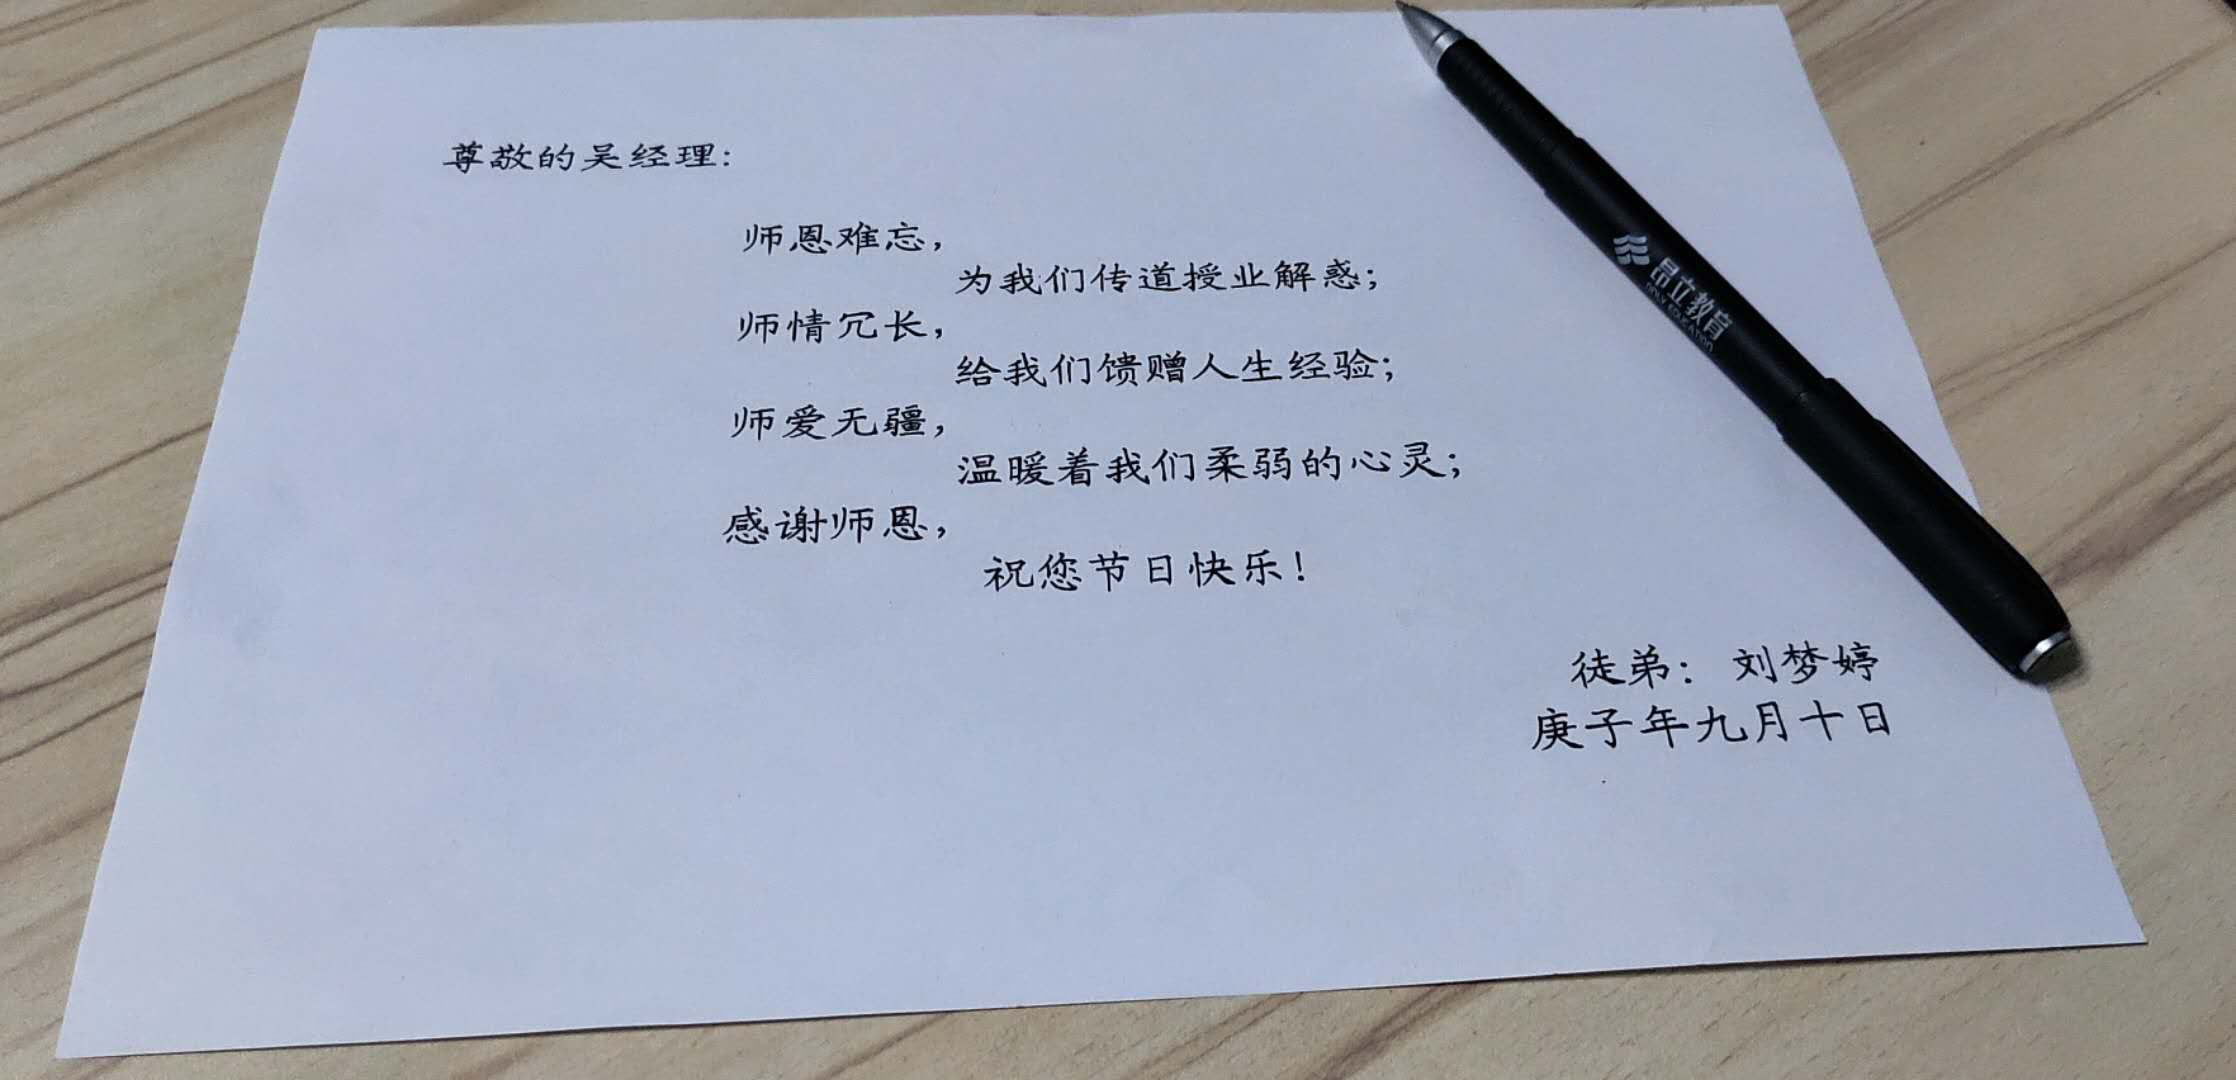 尊敬的吴经理：
师恩难忘，
为我们传道授业解惑；
师情冗长，
给我们馈赠人生经验；
师爱无疆，
温暖着我们柔弱的心灵；
感谢师恩，
祝您节日快乐！
徒弟：刘梦婷
庚子年九月十日
昂立教育
ONLY EDUCATION